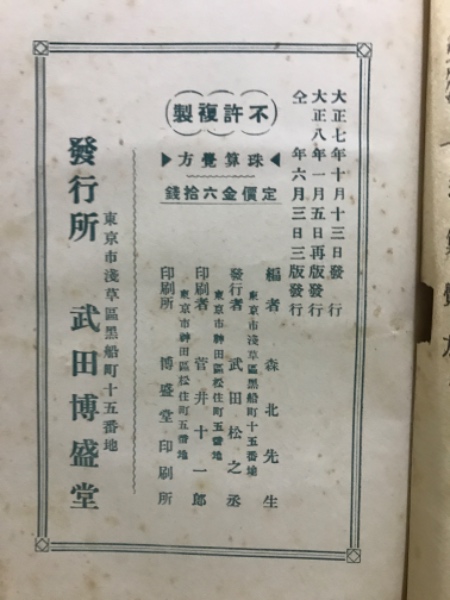 大正七年十月十三日發行
大正八年一月五日再版發行
仝年六月三日三版發行
不許複製
珠算覺方
定價金六拾錢
編者 森北先生
東京市淺草區黑船町十五番地
發行者 武田松之丞
東京市神田區松住町五番地
印刷者 菅井十一郎
東京市神田區松住町五番地
印刷所 博盛堂印刷所
東京市淺草區黑船町十五番地
發行所 武田博盛堂